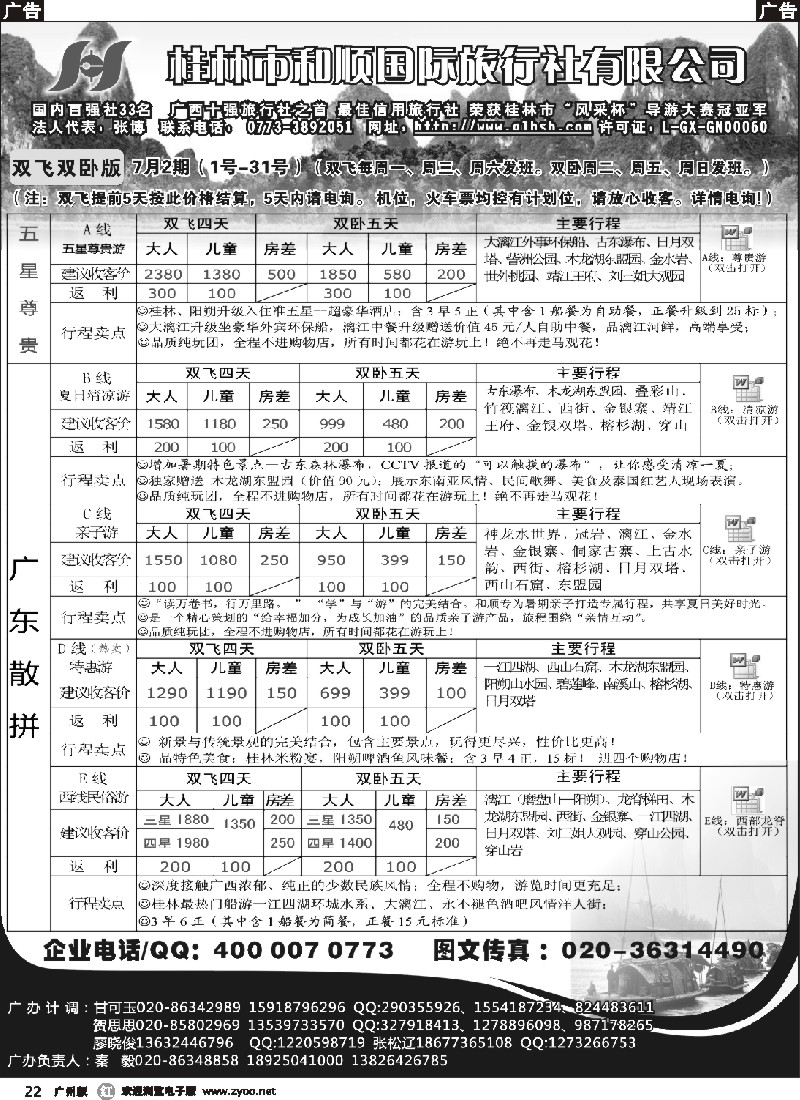 广告
广告
桂林市和顺国际旅行社有限公司
国内百强社33名 广西十强旅行社之首 最佳信用旅行社 荣获桂林市“风采杯”导游大赛冠亚军
法人代表：张博 联系电话：0773-3892051 网址：http://www.glhsh.com 许可证：L-GX-GN00060
双飞双卧版 7月2期（1号-31号）（双飞每周一、周三、周六发班。双卧周二、周五、周日发班。）
（注：双飞提前5天按此价格结算，5天内请电询。机位，火车票均控有计划位，请放心收客。详情电询!）
五星尊贵
A线 双飞四天 双卧五天 主要行程
五星尊贵游 大人 儿童 房差 大人 儿童 房差
大漓江外事环保船、古东瀑布、日月双
塔、訾洲公园、木龙湖东盟园、金水岩、
世外桃园、靖江王府、刘三姐大观园
A线：尊贵游
（双击打开）
建议收客价 2380 1380 500 1850 580 200
返 利 300 100 300 100
行程卖点
☺桂林、阳朔升级入住准五星—超豪华酒店；含3早5正（其中含1船餐为自助餐，正餐升级到25标）；
☺大漓江升级坐豪华外宾环保船，漓江中餐升级赠送价值45元/人自助中餐，品漓江河鲜，高端享受；
☺品质纯玩团，全程不进购物店，所有时间都花在游玩上！绝不再走马观花！
广东散拼
B线 双飞四天 双卧五天 主要行程
夏日清凉游 大人 儿童 房差 大人 儿童 房差
古东瀑布、木龙湖东盟园、叠彩山、
竹筏漓江、西街、金银寨、靖江
王府、金银双塔、榕杉湖、穿山
B线：清凉游
（双击打开）
建议收客价 1580 1180 250 999 480 200
返 利 200 100 200 100
行程卖点
☺增加暑期特色景点—古东森林瀑布，CCTV报道的“可以触摸的瀑布”，让你感受清凉一夏；
☺独家赠送 木龙湖东盟园（价值90元）；展示东南亚风情、民间歌舞、美食及泰国红艺人现场表演。
☺品质纯玩团，全程不进购物店，所有时间都花在游玩上！绝不再走马观花！
C线 双飞四天 双卧五天 主要行程
亲子游 大人 儿童 房差 大人 儿童 房差
神龙水世界、冠岩、漓江、金水
岩、金银寨、侗家古寨、上古水
韵、西街、榕杉湖、日月双塔、
西山石窟、东盟园
C线：亲子游
（双击打开）
建议收客价 1550 1080 250 950 399 150
返 利 100 100 100 100
行程卖点
☺“读万卷书，行万里路， ” “学”与“游”的完美结合，和顺专为暑期亲子打造专属行程，共享夏日美好时光。
☺是一个精心策划的“给幸福加分，为成长加油”的品质亲子游产品，旅程围绕“亲情互动”。
☺品质纯玩团，全程不进购物店，所有时间都花在游玩上！
D线（热卖） 双飞四天 双卧五天 主要行程
特惠游 大人 儿童 房差 大人 儿童 房差
一江四湖、西山石窟、木龙湖东盟园、
阳朔山水园、碧莲峰、南溪山、榕杉湖、
日月双塔
D线：特惠游
（双击打开）
建议收客价 1290 1190 150 699 399 100
返 利 100 100 100 100
行程卖点
☺ 新景与传统景观的完美结合，包含主要景点，玩得更尽兴，性价比更高！
☺ 品特色美食：桂林米粉宴，阳朔啤酒鱼风味餐；含3早4正，15标！ 进四个购物店！
E线 双飞四天 双卧五天 主要行程
西线民俗游 大人 儿童 房差 大人 儿童 房差
漓江（磨盘山—阳朔）、龙脊梯田、木
龙湖东盟园、西街、金银寨、一江四湖、
日月双塔、刘三姐大观园、穿山公园、
穿山岩
E线：西部龙脊
（双击打开）
建议收客价 三星 1880 1350 200 三星 1350 480 150
四星 1980 250 四星 1400 200
返 利 200 100 200 100
行程卖点
☺深度接触广西浓郁、纯正的少数民族风情；全程不购物，游览时间更充足；
☺桂林最热门船游一江四湖环城水系、大漓江、永不褪色酒吧风情洋人街；
☺3早6正（其中含1船餐为简餐，正餐15元标准）
企业电话/QQ：400 007 0773 图文传真：020-36314490
广办计调：甘可玉020-86342989 15918796296 QQ:290355926、1554187234、824483611
贺思思020-85802969 13539733570 QQ:327918413、1278896098、987178265
廖晓俊13632446796 QQ:1220598719 张松辽18677365108 QQ:1273266753
广办负责人：秦 毅020-86348858 18925041000 13826426785
22 广州版 红 欢迎浏览电子版 www.zyoo.net